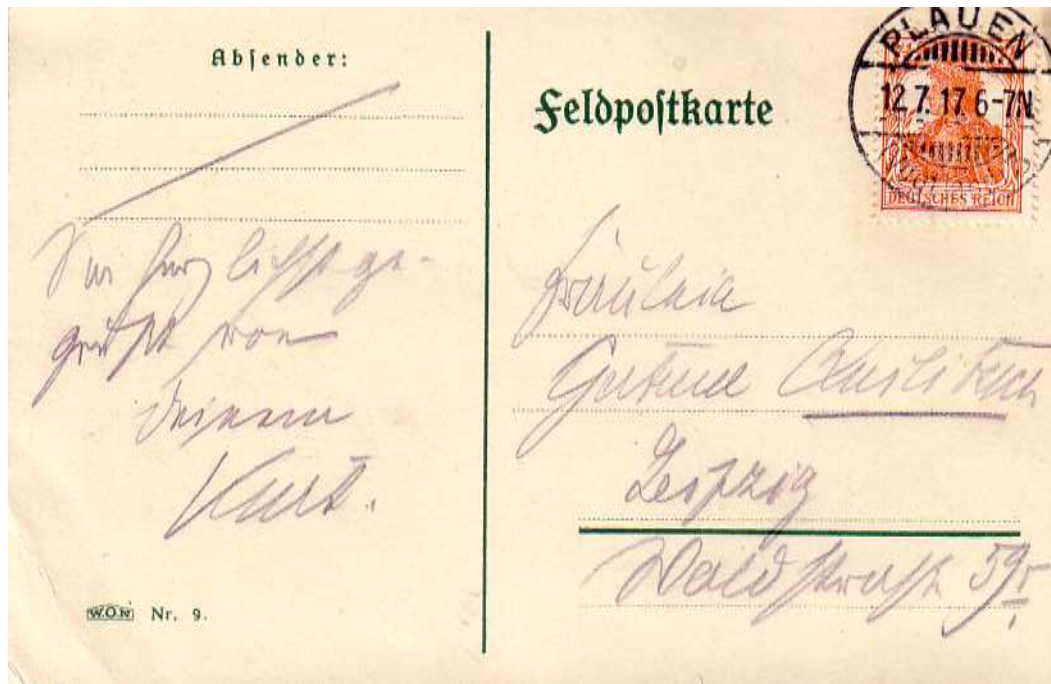 Absender:
Sei herzlichst ge-
grüßt von
Deinem
Kurt.
W.O.N. Nr. 9.
Feldpostkarte
PLAUEN
12.7.17.6-7N
DEUTSCHES REICH
Fräulein
Gertrud
Leipzig
Waldstraße 59